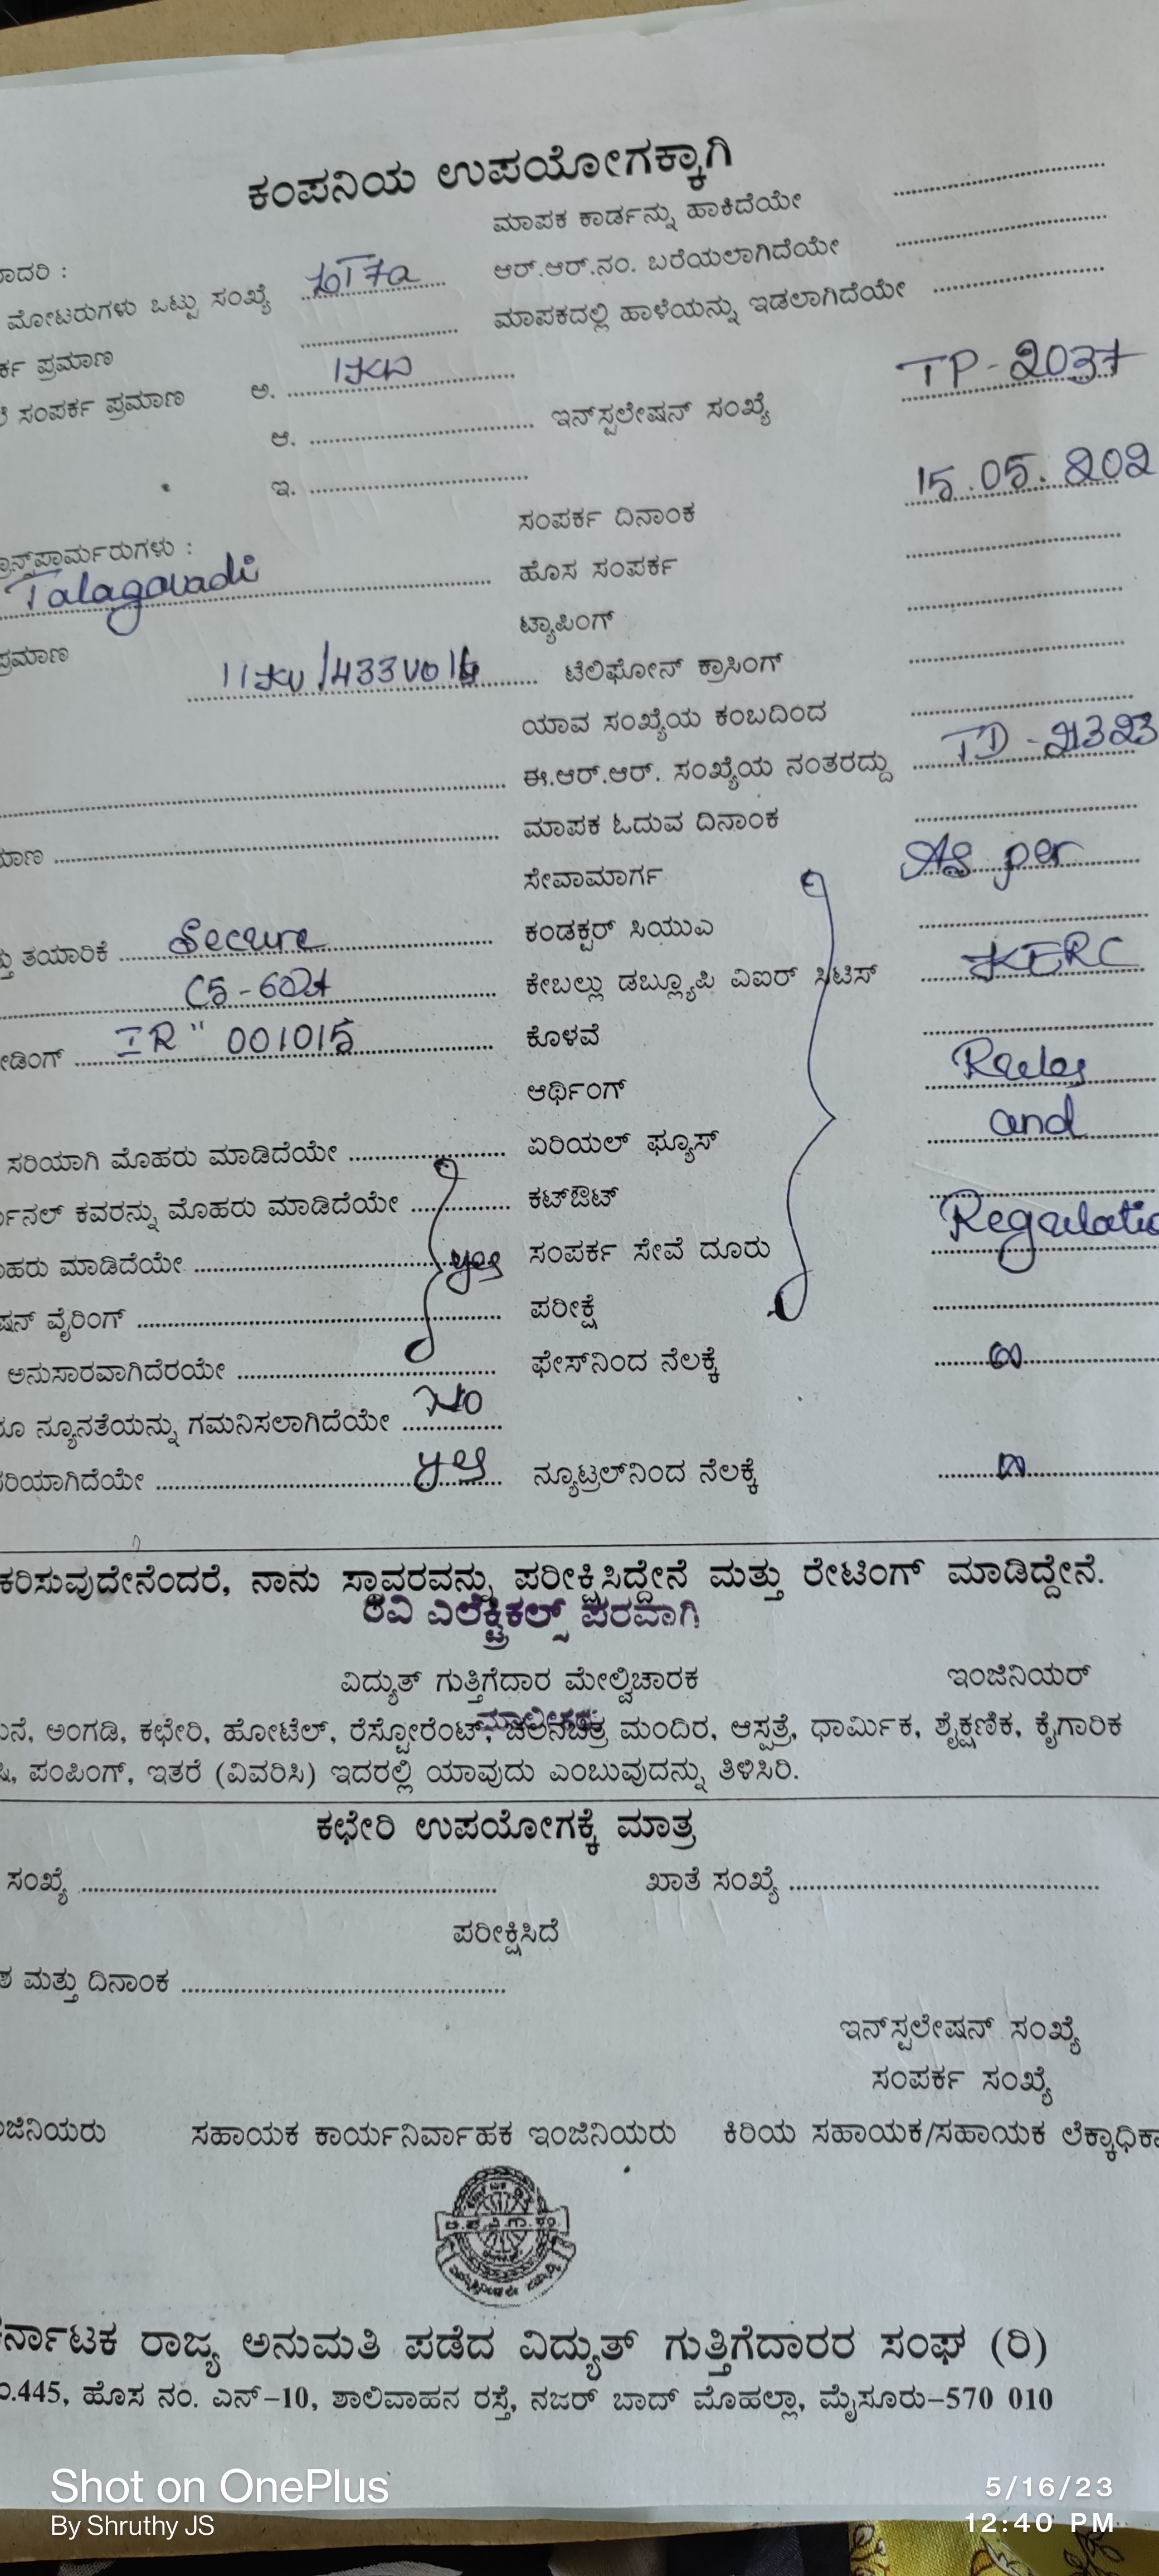 ಕಂಪನಿಯ ಉಪಯೋಗಕ್ಕಾಗಿ
ಮಾಪಕ ಕಾರ್ಡನ್ನು ಹಾಕಿದೆಯೇ
ಆರ್.ಆರ್.ನಂ. ಬರೆಯಲಾಗಿದೆಯೇ
ಮೋಟರುಗಳು ಒಟ್ಟು ಸಂಖ್ಯೆ
ಮಾಪಕದಲ್ಲಿ ಹಾಳೆಯನ್ನು ಇಡಲಾಗಿದೆಯೇ
ಪ್ರಮಾಣ
ಸಂಪರ್ಕ ಪ್ರಮಾಣ ಅ. 1KW
ಆ. ಇನ್‌ಸ್ಟಲೇಷನ್ ಸಂಖ್ಯೆ TP-2037
ಇ.
ಸಂಪರ್ಕ ದಿನಾಂಕ 15.05.202
Talagavadi ಹೊಸ ಸಂಪರ್ಕ
ಟ್ಯಾಪಿಂಗ್
ಪ್ರಮಾಣ 11KV/433Volt ಟೆಲಿಫೋನ್ ಕ್ರಾಸಿಂಗ್
ಯಾವ ಸಂಖ್ಯೆಯ ಕಂಬದಿಂದ
ಈ.ಆರ್.ಆರ್. ಸಂಖ್ಯೆಯ ನಂತರದ್ದು TD-21323
ಮಾಪಕ ಓದುವ ದಿನಾಂಕ
ಸೇವಾಮಾರ್ಗ As per
ತಯಾರಿಕೆ Secure ಕಂಡಕ್ಟರ್ ಸಿಯುಎ
ಕೇಬಲ್ಲು ಡಬ್ಲ್ಯೂಪಿ ವಿಐರ್ ಸಿಟಿಸ್ KERC
IR" 001015 ಕೊಳವೆ
ಆರ್ಥಿಂಗ್ Rules
ಸರಿಯಾಗಿ ಮೊಹರು ಮಾಡಿದೆಯೇ ಏರಿಯಲ್ ಫ್ಯೂಸ್ and
ಕವರನ್ನು ಮೊಹರು ಮಾಡಿದೆಯೇ ಕಟ್‌ಔಟ್
ಮಾಡಿದೆಯೇ yes ಸಂಪರ್ಕ ಸೇವೆ ದೂರು Regulatio
ವೈರಿಂಗ್ ಪರೀಕ್ಷೆ
ಅನುಸಾರವಾಗಿದೆರಯೇ ಫೇಸ್‌ನಿಂದ ನೆಲಕ್ಕೆ
ನ್ಯೂನತೆಯನ್ನು ಗಮನಿಸಲಾಗಿದೆಯೇ No
yes ನ್ಯೂಟ್ರಲ್‌ನಿಂದ ನೆಲಕ್ಕೆ
ನಾನು ಸ್ಥಾವರವನ್ನು ಪರೀಕ್ಷಿಸಿದ್ದೇನೆ ಮತ್ತು ರೇಟಿಂಗ್ ಮಾಡಿದ್ದೇನೆ.
ರವಿ ಎಲೆಕ್ಟ್ರಿಕಲ್ಸ್ ಪರವಾಗಿ
ವಿದ್ಯುತ್ ಗುತ್ತಿಗೆದಾರ ಮೇಲ್ವಿಚಾರಕ ಇಂಜಿನಿಯರ್
ಅಂಗಡಿ, ಕಛೇರಿ, ಹೋಟೆಲ್, ರೆಸ್ಟೋರೆಂಟ್, ಚಲನಚಿತ್ರ ಮಂದಿರ, ಆಸ್ಪತ್ರೆ, ಧಾರ್ಮಿಕ, ಶೈಕ್ಷಣಿಕ, ಕೈಗಾರಿಕ
ಪಂಪಿಂಗ್, ಇತರೆ (ವಿವರಿಸಿ) ಇದರಲ್ಲಿ ಯಾವುದು ಎಂಬುವುದನ್ನು ತಿಳಿಸಿರಿ.
ಕಛೇರಿ ಉಪಯೋಗಕ್ಕೆ ಮಾತ್ರ
ಸಂಖ್ಯೆ ಖಾತೆ ಸಂಖ್ಯೆ
ಪರೀಕ್ಷಿಸಿದೆ
ಮತ್ತು ದಿನಾಂಕ
ಇನ್‌ಸ್ಟಲೇಷನ್ ಸಂಖ್ಯೆ
ಸಂಪರ್ಕ ಸಂಖ್ಯೆ
ಸಹಾಯಕ ಕಾರ್ಯನಿರ್ವಾಹಕ ಇಂಜಿನಿಯರು ಕಿರಿಯ ಸಹಾಯಕ/ಸಹಾಯಕ ಲೆಕ್ಕಾಧಿಕಾ
ಕರ್ನಾಟಕ ರಾಜ್ಯ ಅನುಮತಿ ಪಡೆದ ವಿದ್ಯುತ್ ಗುತ್ತಿಗೆದಾರರ ಸಂಘ (ರಿ)
.445, ಹೊಸ ನಂ. ಎನ್-10, ಶಾಲಿವಾಹನ ರಸ್ತೆ, ನಜರ್ ಬಾದ್ ಮೊಹಲ್ಲಾ, ಮೈಸೂರು-570 010
Shot on OnePlus
By Shruthy JS
5/16/23
12:40 PM